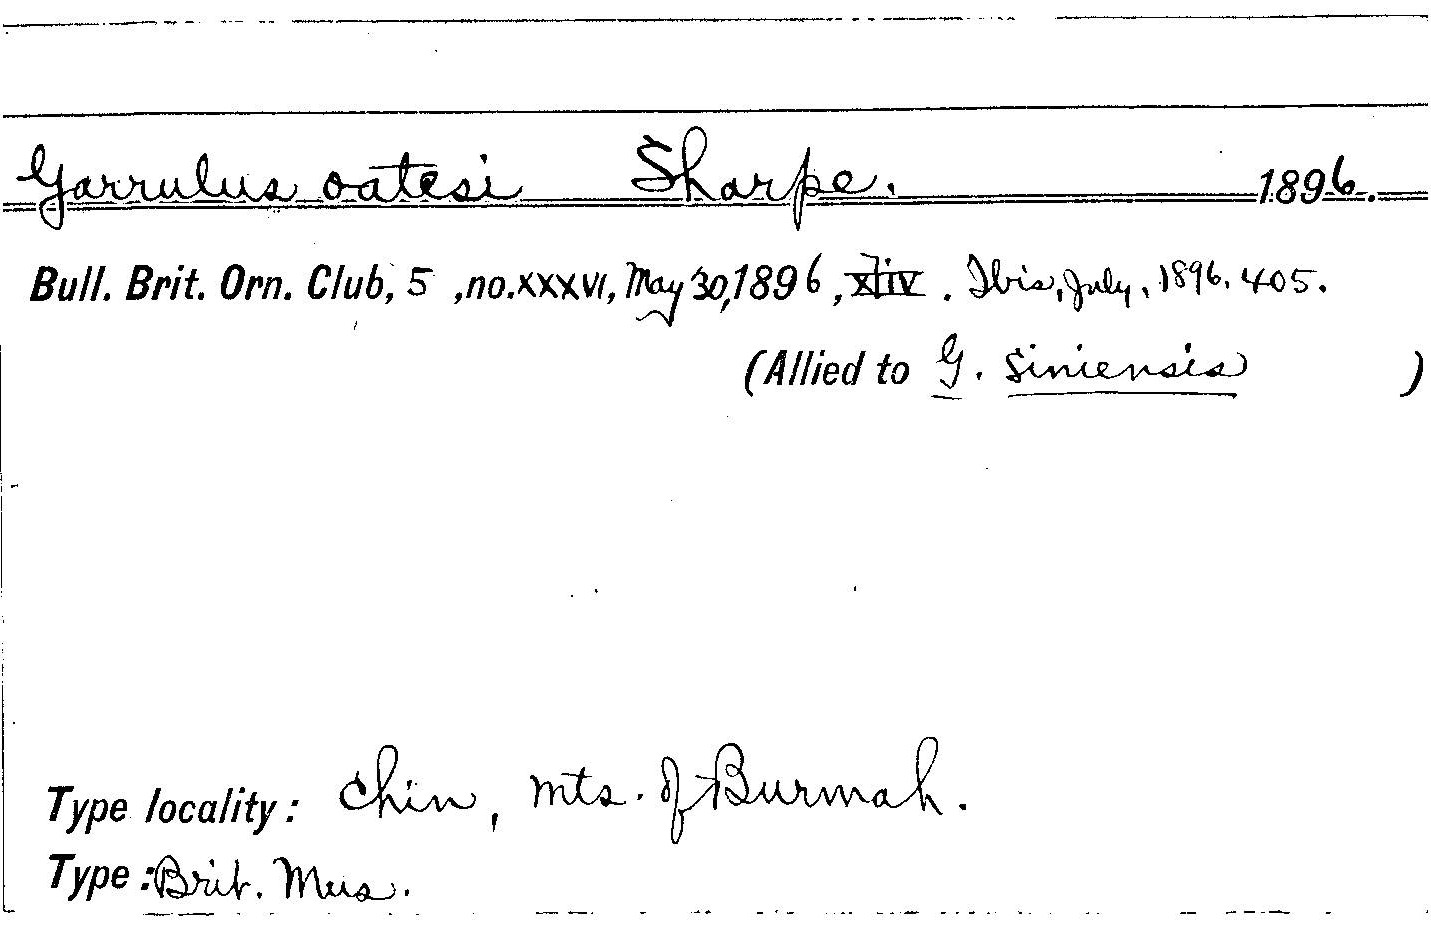 Garrulus oatesi Sharpe. 1896.
Bull. Brit. Orn. Club, 5 , no. XXXVI, May 30, 1896 , xliv . Ibis, July, 1896, 405.
(Allied to G. siniensis )
Type locality: Chin, Mts. of Burmah.
Type: Brit. Mus.